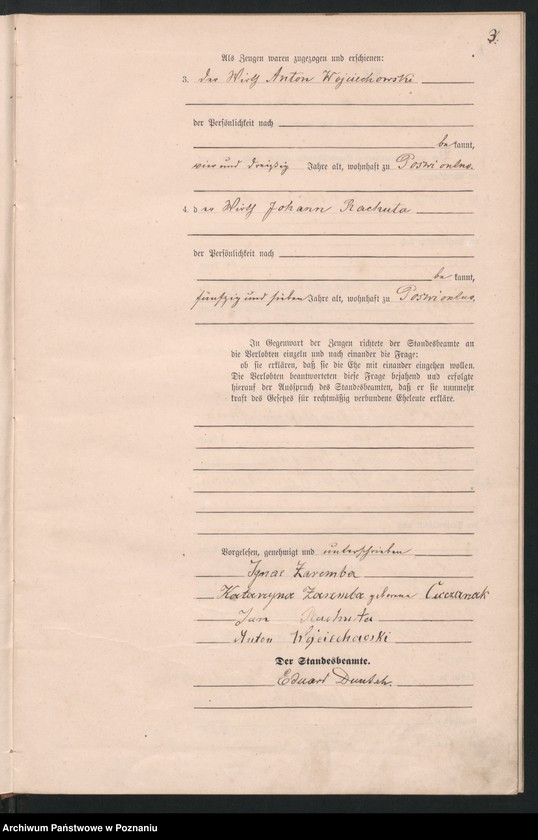 3.
Als Zeugen waren zugezogen und erschienen:
3. der Wirth Anton Wojciechowski
der Persönlichkeit nach
be kannt,
vier und dreißig Jahre alt, wohnhaft zu
4. der Wirth Johann Rachuta
der Persönlichkeit nach
be kannt,
fünfzig und sieben Jahre alt, wohnhaft zu
In Gegenwart der Zeugen richtete der Standesbeamte an
die Verlobten einzeln und nach einander die Frage:
ob sie erklären, daß sie die Ehe mit einander eingehen wollen.
Die Verlobten beantworteten diese Frage bejahend und erfolgte
hierauf der Ausspruch des Standesbeamten, daß er sie nunmehr
kraft des Gesetzes für rechtmäßig verbundene Eheleute erkläre.
Vorgelesen, genehmigt und unterschrieben
Ignac Zaremba
Katarzyna Zaremba geborene
Jan Rachuta
Anton Wojciechowski
Der Standesbeamte.
Eduard
Archiwum Państwowe w Poznaniu